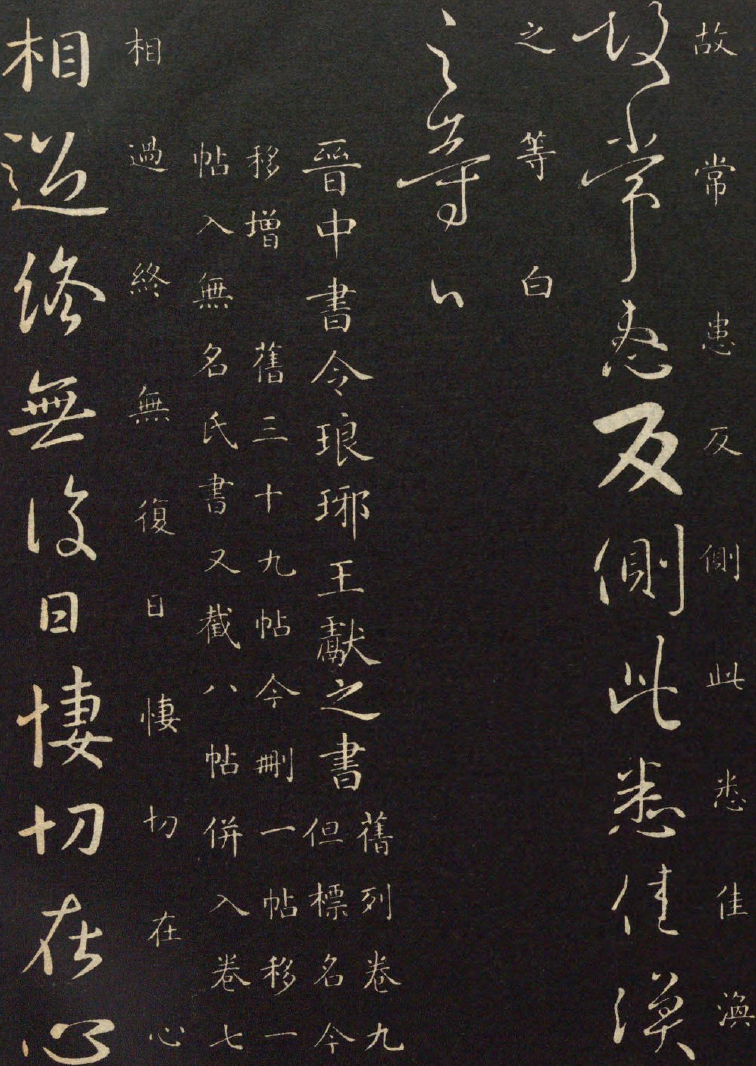 故常患反側此悉佳渙
故常患反側此悉佳渙
之等白
之等白
晉中書令琅琊王獻之書
舊列卷九
但標名今
移增 舊三十九帖今刪一帖移一
帖入無名氏書又截八帖併入卷七
相過終無復日悽切在心
相過終無復日悽切在心